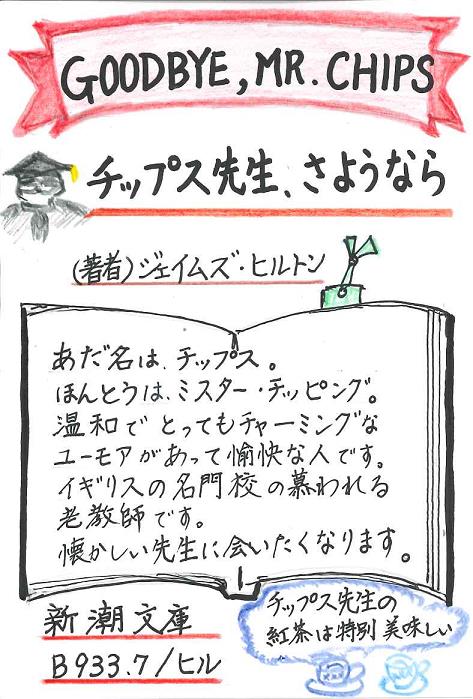 GOODBYE, MR. CHIPS
チップス先生、さようなら
(著者)ジェイムズ・ヒルトン
あだ名は、チップス。
ほんとうは、ミスター・チッピング。
温和で とってもチャーミングな
ユーモアがあって愉快な人です。
イギリスの名門校の慕われる
老教師です。
懐かしい先生に会いたくなります。
新潮文庫
B933.7/ヒル
チップス先生の
紅茶は特別美味しい